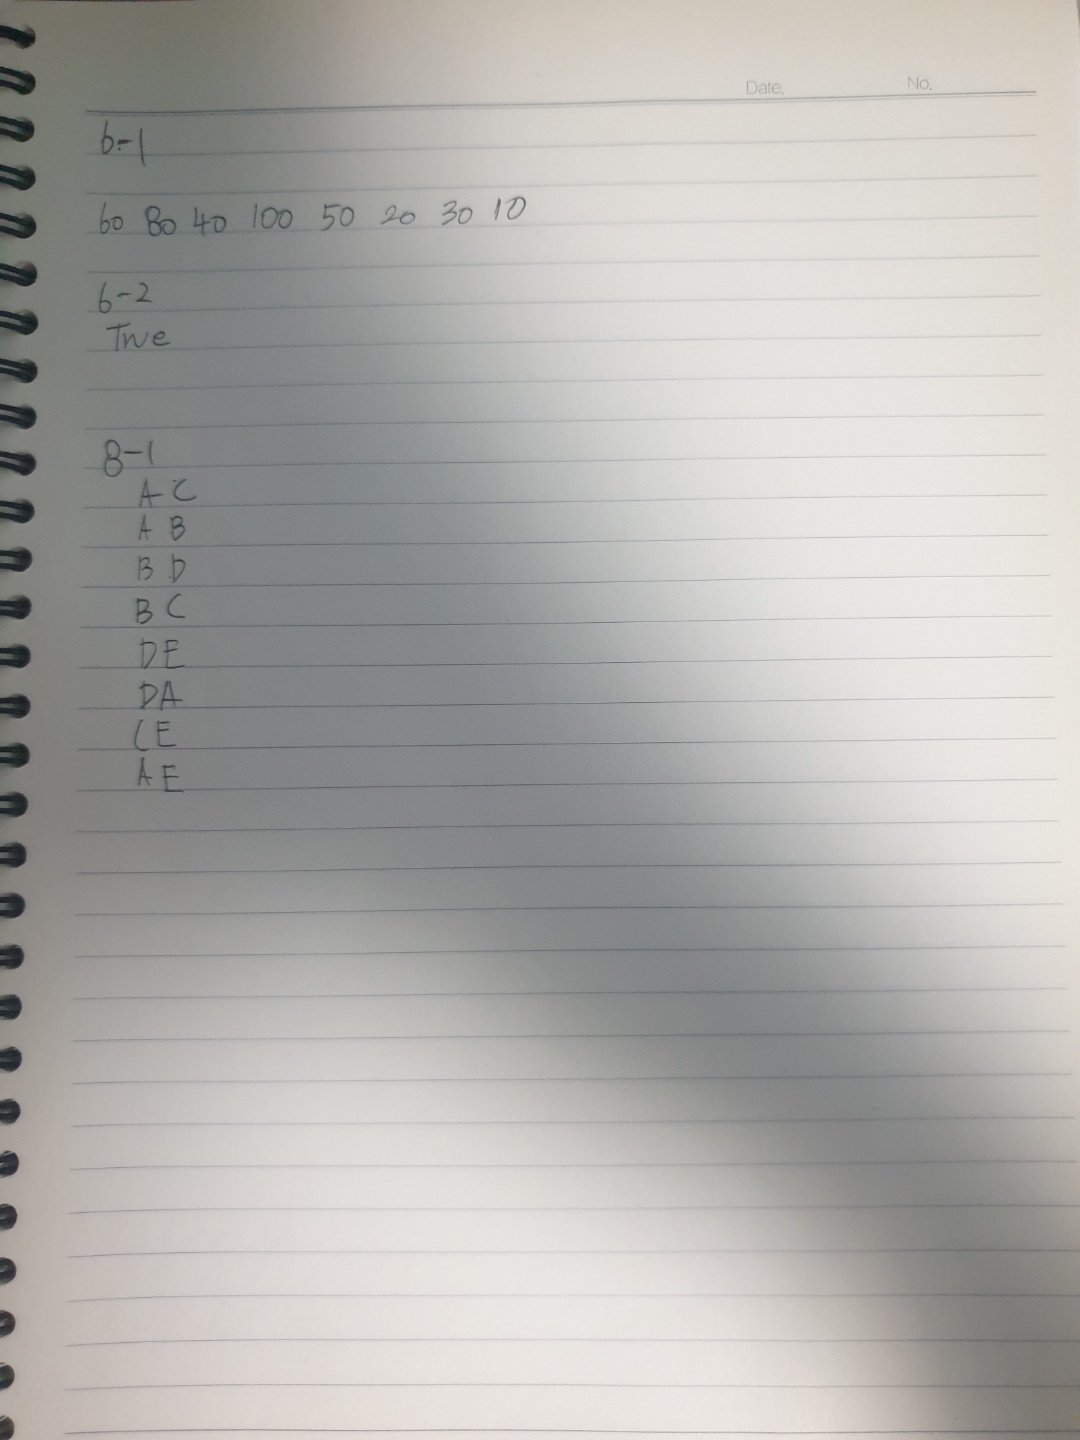 Date. No.
6-1
60 80 40 100 50 20 30 10
6-2
True
8-1
A C
A B
B D
B C
D E
D A
C E
A E